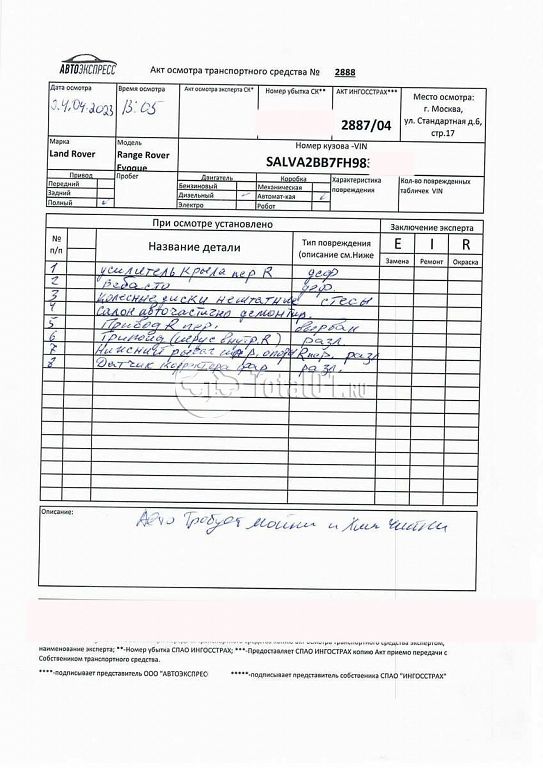 АВТОЭКСПРЕСС
Акт осмотра транспортного средства № 2888
Дата осмотра
Время осмотра
Акт осмотра эксперта СК**
Номер убытка СК**
АКТ ИНГОССТРАХ***
Место осмотра:
г. Москва,
ул. Стандартная д.6,
стр.17
24.04.2023
13:05
2887/04
Марка
Модель
Номер кузова -VIN
Land Rover
Range Rover
Evoque
SALVA2BB7FH98
Привод
Пробег
Двигатель
Коробка
Характеристика
повреждения
Кол-во поврежденных
табличек VIN
Передний
Бензиновый
Механическая
Задний
Дизельный ✓
Автомат-кая ✓
Полный ✓
Электро
Робот
При осмотре установлено
Заключение эксперта
№
п/п
Название детали
Тип повреждения
(описание см.Ниже
E I R
Замена Ремонт Окраска
1 усилитель крыла пер R деф
2 Вебасто деф.
3 колесные диски нештатные стесы
4 Салон авто частично демонтир.
5 Привод R пер. вырван
6 Трипоид (шрус внутр. R) разл.
7 Нижний рычаг R пер. разл
8 Датчик корректора фар разл.
Total01.RU
Описание:
Авто требует мойки и хим чистки
наименование эксперта; **-Номер убытка СПАО ИНГОССТРАХ; ***-Предоставляет СПАО ИНГОСТРАХ копию Акт приемо передачи с
Собствеником транспортного средства.
****-подписывает представитель ООО "АВТОЭКСПРЕС
*****-подписывает представитель собственика СПАО "ИНГОССТРАХ"